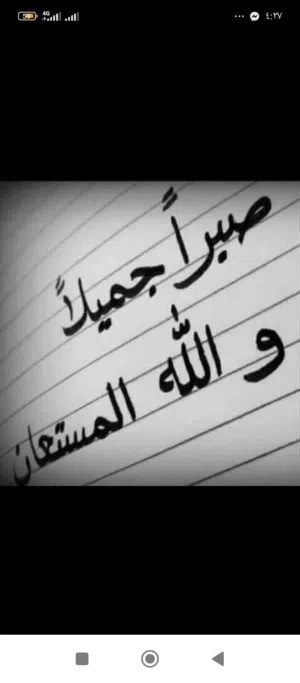 ٤:٢٧
4G
صبراً جميلاً
و الله المستعان